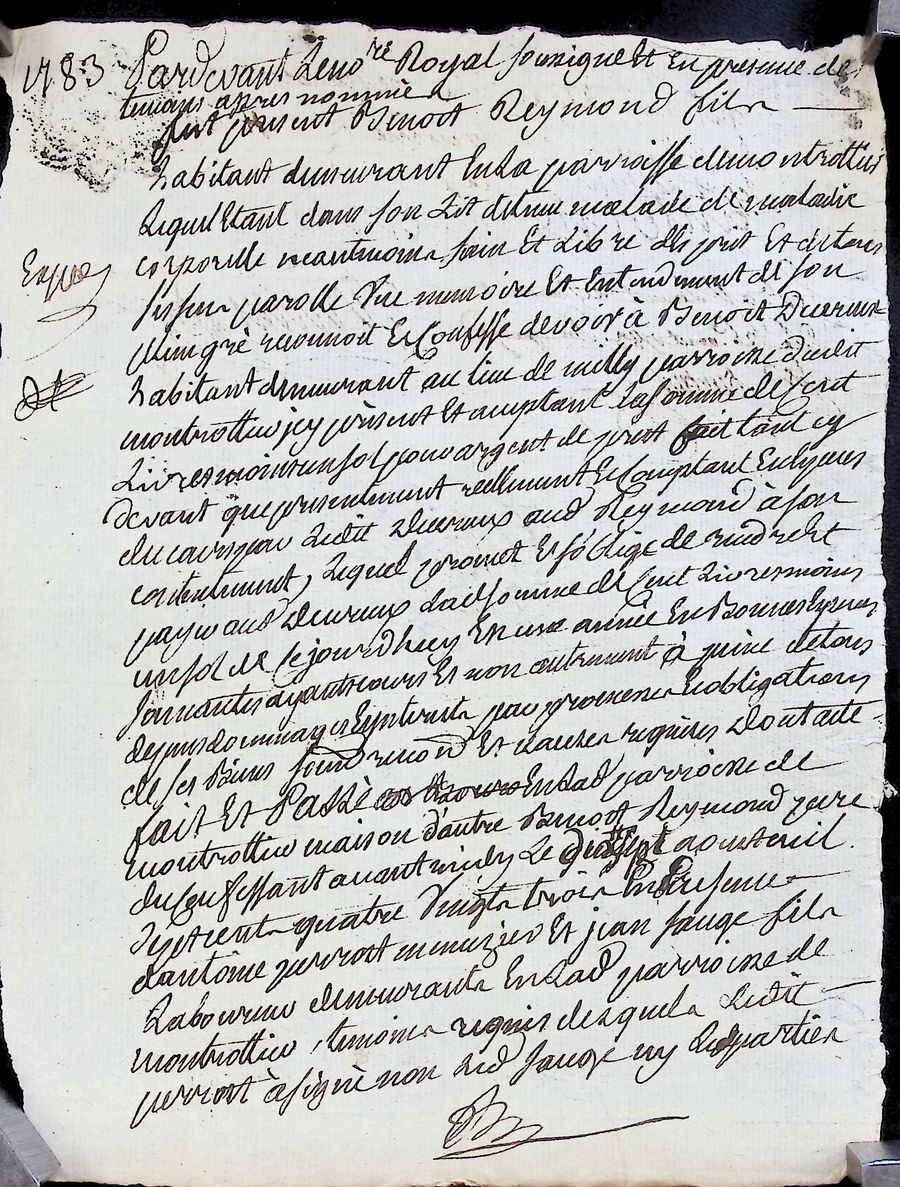 1783 Pardevant Le no.re Royal soussigné Et En presence des
temoins apres nommés
fut present Benoit Reymond fils
habitant demeurant En La parroisse de montrottier
Lequel Etant dans son Lit detenu malade de maladie
corporelle neantmoins sain Et Libre d'Esprit Et de tous
Exped
ses sens parolle Vue memoire Et Entendement de son
plein gré reconnoit Et Confesse devoir à Benoit Ducreux
habitant demeurant au lieu de milly parroisse dudit
montrottier icy present Et acceptant la somme de Cent
Livres moins un sol pour argent de pret fait tant cy
devant que presentement reellement Et Comptant En Especes
du cours par Ledit Ducreux aud Reymond à son
contentement, Lequel promet Et s'oblige de rendre Et
payer aud Ducreux lad somme de Cent Livres moins
un sol de ce jourdhuy En une année En Bonnes Especes
sonnantes ayant cours Et non autrement à peine de tous
depens dommages Et interets par promesse Et obligations
de ses Biens soum renond Et clauses requises Dont acte
fait Et Passé En Lad parroisse de
montrottier maison d'autre Benoit Reymond pere
du Confessant avant midy Le dix sept aoust mil
sept cents quatre Vingts trois En Presence
d'antoine perrost menuizier Et jean sauge fils
Laboureur demeurants En Lad parroisse de
montrottier, temoins requis desquels Ledit
perrost à signé non Led sauge ny Les parties